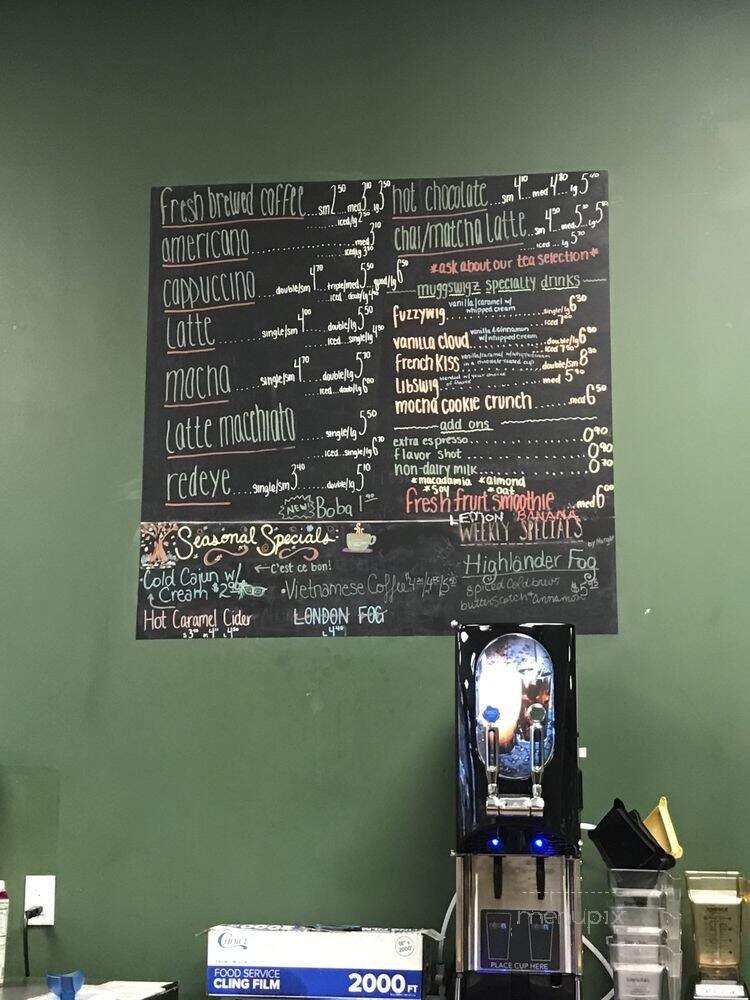 fresh brewed coffee ... sm 2.50 ... med 3.10 ... lg 3.50
iced/lg 2.50
americano ... med 3.10
iced/lg
cappuccino ... double/sm 4.70 ... triple/med 5.50 ... quad/lg 6.50
iced
latte ... single/sm 4.00 ... double/lg 5.50
iced ... single/lg 4.50
mocha ... single/sm 4.70 ... double/lg 5.70
iced ... double/lg 6.00
latte macchiato ... single/lg 5.50
iced ... single/lg 6.70
redeye ... single/sm 3.40 ... double/lg 5.10
NEW! Boba 1.90
hot chocolate ... sm 4.10 ... med 4.80 ... lg 5.40
chai/matcha latte ... sm 4.50 ... med 5.50 ... lg
iced ... lg 5.70
*ask about our tea selection*
muggswigz specialty drinks
vanilla/caramel w/
whipped cream
fuzzywig ... single/lg 6.30
iced 7.00
vanilla & cinnamon
w/whipped cream
vanilla cloud ... double/lg 6.80
iced 7.50
french kiss ... double/sm
libswig ... med 5.90
mocha cookie crunch ... med 6.50
add ons
extra espresso ... 0.90
flavor shot ... 0.90
non-dairy milk ... 0.70
*macadamia *almond
*soy *oat
fresh fruit smoothie ... med 6.00
LEMON BANANA
Seasonal Specials:
← c'est ce bon!
Cold Cajun w/
Cream $2.90
Vietnamese Coffee
Hot Caramel Cider
LONDON FOG
L 4.40
WEEKLY SPECIALS
Highlander Fog
spiced cold brew
butterscotch
CHOICE
18" x
2000'
FOOD SERVICE
CLING FILM
2000 FT
PLACE CUP HERE
menupix